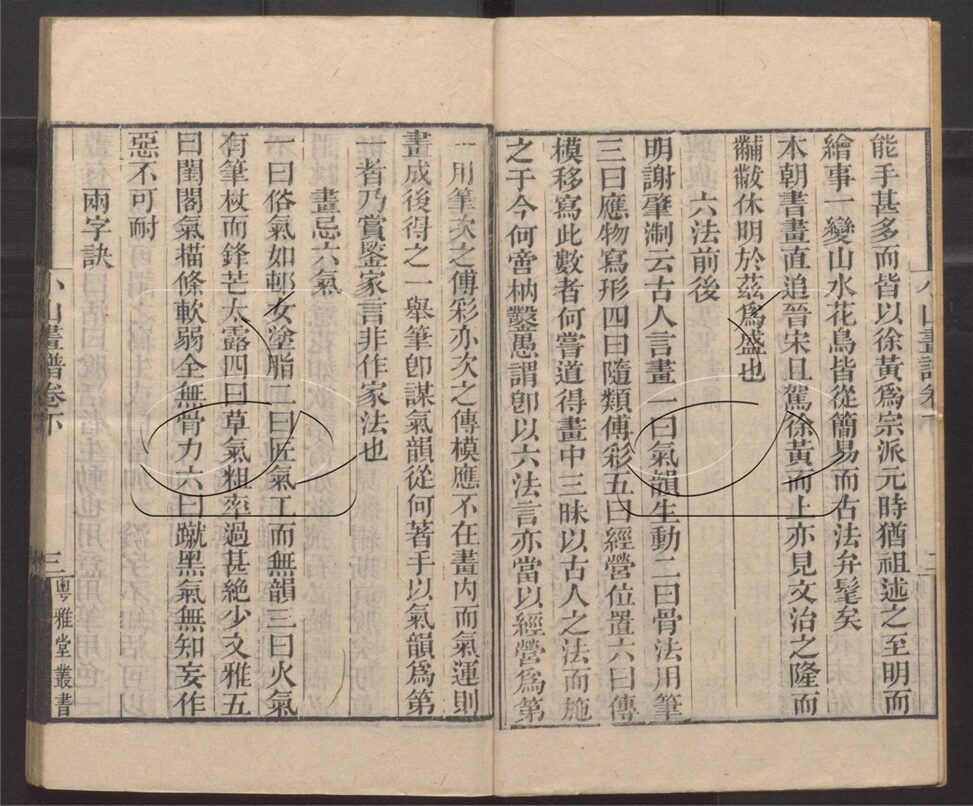 能手甚多而皆以徐黃爲宗派元時猶祖述之至明而
繪事一變山水花鳥皆從簡易而古法弁髦矣
本朝書畫直追晉宋且駕徐黃而上亦見文治之隆而
黼黻休明於茲爲盛也
六法前後
明謝肇淛云古人言畫一曰氣韻生動二曰骨法用筆
三曰應物寫形四曰隨類傅彩五曰經營位置六曰傳
模移寫此數者何嘗道得畫中三昧以古人之法而施
之于今何啻枘鑿愚謂卽以六法言亦當以經營爲第
一用筆次之傅彩亦次之傳模應不在畫內而氣運則
畫成後得之一舉筆卽謀氣韻從何著手以氣韻爲第
一者乃賞鑒家言非作家法也
畫忌六氣
一曰俗氣如邨女塗脂二曰匠氣工而無韻三曰火氣
有筆杖而鋒芒太露四曰草氣粗率過甚絕少文雅五
曰閨閣氣描條軟弱全無骨力六曰蹴黑氣無知妄作
惡不可耐
兩字訣
小山畫譜卷下
三
粵雅堂叢書